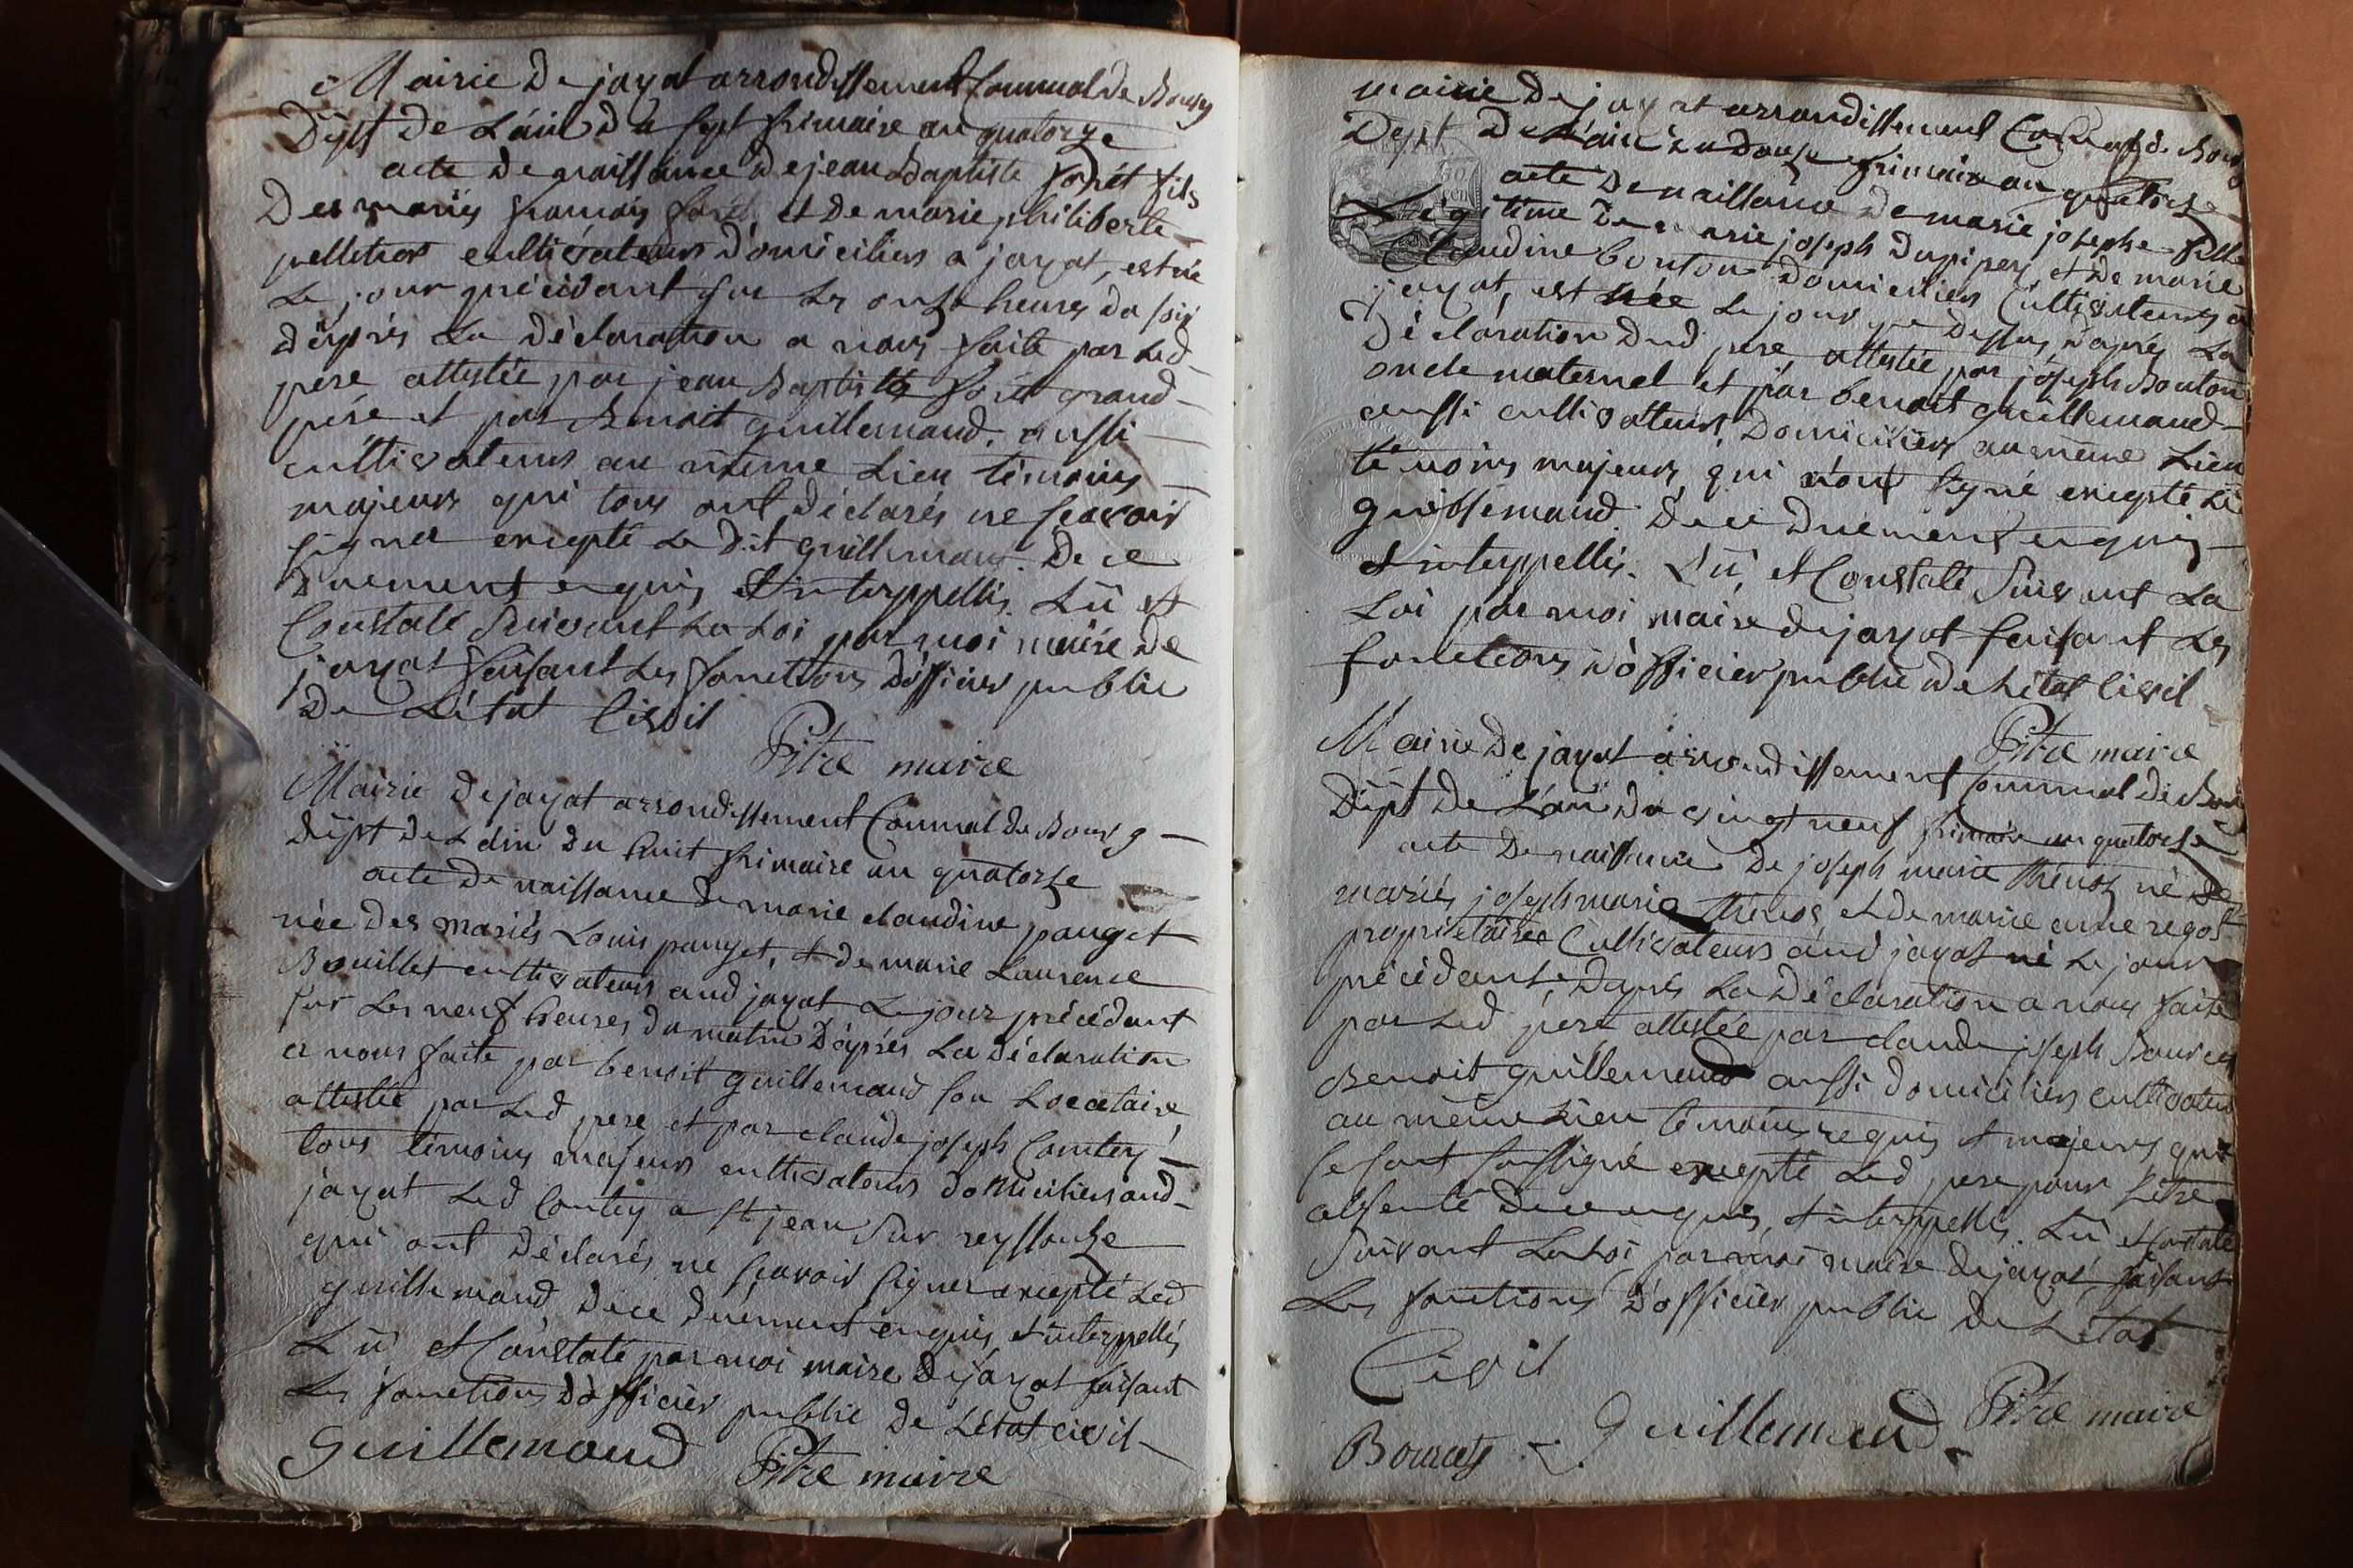 Mairie De jayat arrondissement Commnal de Bourg
Dept De L'ain du sept frimaire an quatorze
acte De naissance De jean Baptiste forêt fils
Des mariés francois forêt et De marie philiberte
pelletier cultivateurs domiciliés a jayat, est né
Le jour précédant sur Les onze heures du soir
d'après La Déclaration a nous faite par Led
pere attestée par jean Baptiste forêt grand
pére et par Benoit guillemaud. aussi
cultivateurs au même Lieu témoins
majeurs qui tous ont déclarés ne scavoir
signer excepté Le dit guillemaud. De ce
duement enquis et interppellés. Lû et
Constaté Suivant La Loi par moi maire De
jayat faisant Les fonctions D'officier public
De L'état Civil
Pitre maire
Mairie De jayat arrondissement Commnal de Bourg
dept de L'ain du huit frimaire an quatorze
acte De naissance De marie claudine pauget
née des mariés Louis pauget, et de marie Laurence
Bouillet cultivateurs aud jayat Le jour précédant
sur Les neuf heures du matin D'après La déclaration
a nous faite par benoit guillemaud son Locataire,
attestée par Led pere et par claude joseph Comtey
tous témoins majeurs cultivateurs domiciliers aud
jayat Led Contey a st jean sur reyssouze
qui ont déclarés ne scavoir signer excepté Led
guillemaud De ce duement enquis et interppellés
Lû et Constaté par moi maire De jayat faisant
Les fonctions D'officier public De L'état civil
Guillemaud Pitre maire
mairie De jayat arrondissement De Bourg
Dept De L'ain du douze frimaire an quatorze
acte De naissance De marie josephe fille
Légitime De marie joseph et De marie
Claudine bouton domiciliers Cultivateurs a
jayat, est née Le jour que Dessus, d'après La
Déclaration Dud pere attestée par joseph Bouton
oncle maternel et par benoit guillemaud
aussi cultivateurs, Domiciliers au même Lieu
témoins majeurs, qui n'ont signé excepté Le
guillemaud. De ce Duement enquis
et interppellés. Lû, et Constaté Suivant La
Loi par moi maire de jayat faisant Les
fonctions d'officier public de L'état Civil
Pitre maire
Mairie De jayat arrondissement Commnal de Bourg
Dept De L'ain du vingt neuf frimaire an quatorze
acte De naissance De joseph marie né Des
mariés joseph marie et de marie anne
propriétaires Cultivateurs aud jayat né Le jour
précédant D'après La Déclaration a nous faite
par Led pere attestée par claude joseph
Benoit guillemaud aussi domiciliers cultivateurs
au même Lieu témoins requis et majeurs qui
se sont soussigné excepté Led pere pour s'être
absenté De ce enquis, et interppellés. Lû et Constaté
Suivant La Loi par moi maire de jayat faisant
Les fonctions D'officier public De L'état
Civil
Guillemaud Pitre maire